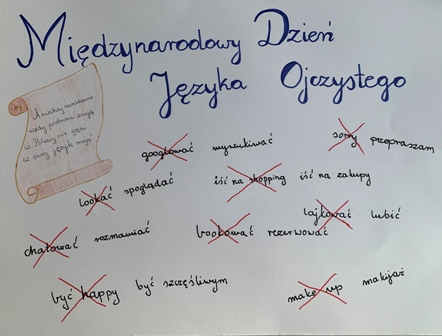 Międzynarodowy Dzień
Języka Ojczystego
A niechaj narodowie
wżdy postronni znają,
iż Polacy nie gęsi,
iż swój język mają
googlować wyszukiwać
sorry przepraszam
lookać spoglądać
iść na shopping iść na zakupy
lajkować lubić
chatować rozmawiać
bookować rezerwować
być happy być szczęśliwym
make up makijaż